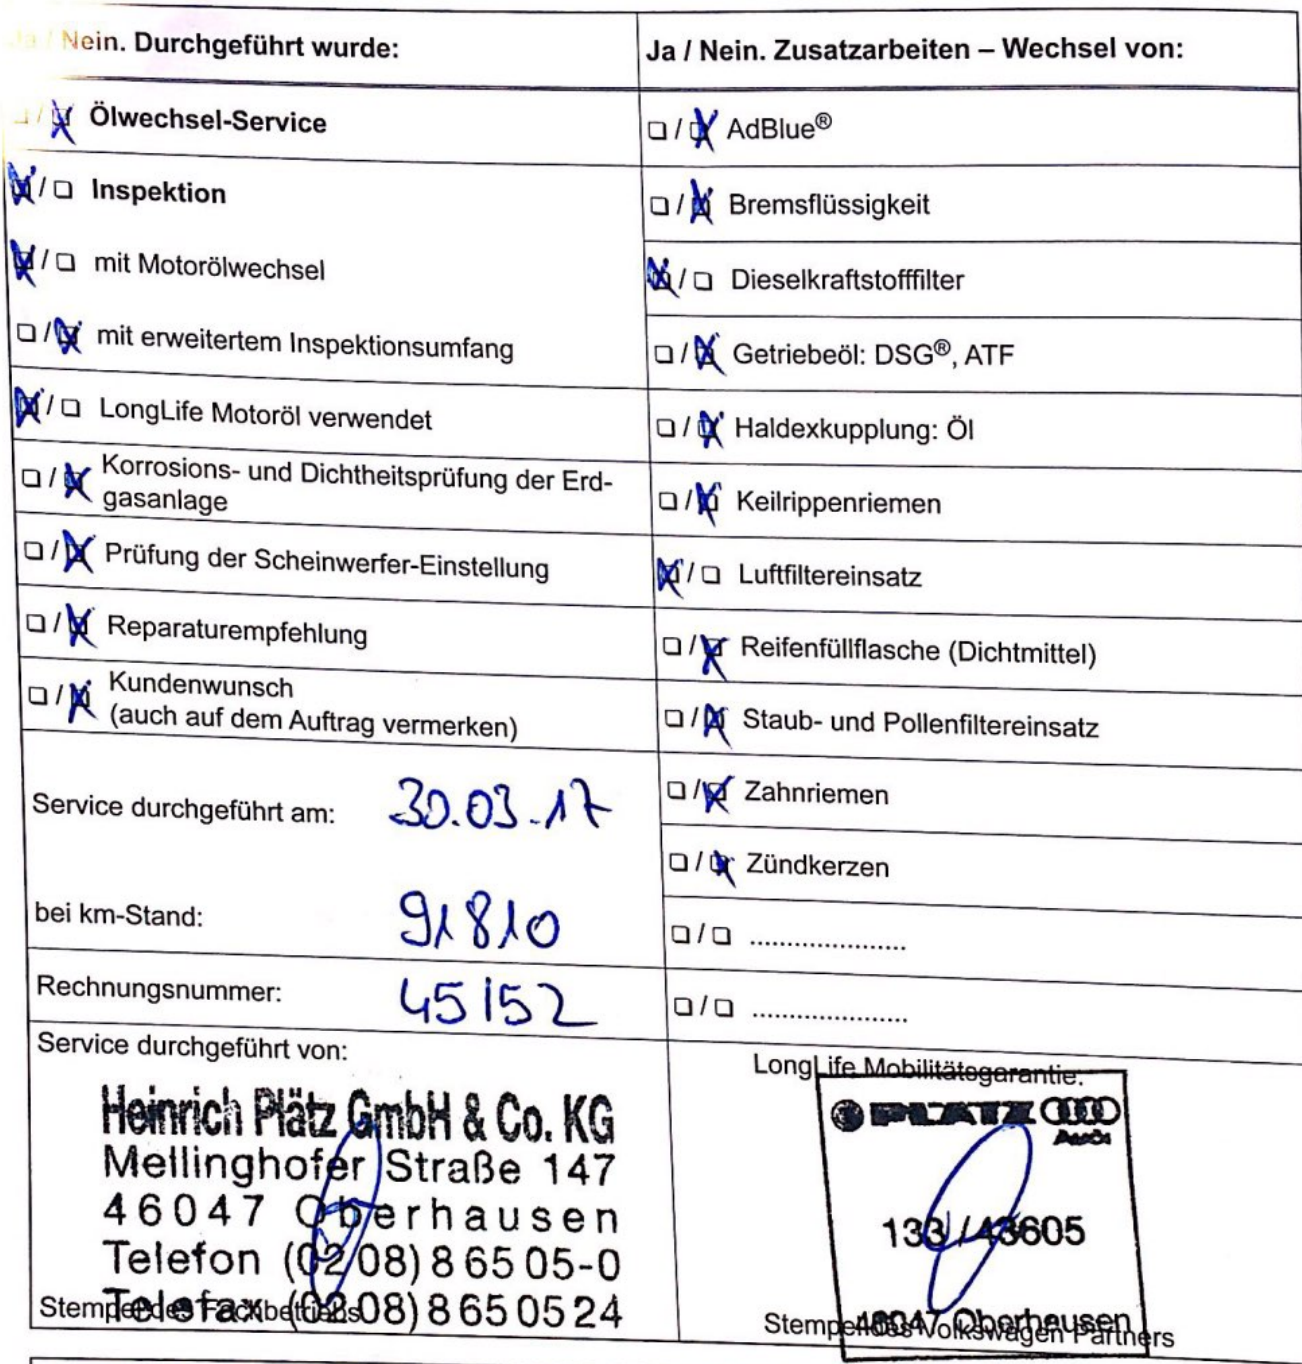 Ja / Nein. Durchgeführt wurde:
Ölwechsel-Service
Inspektion
mit Motorölwechsel
mit erweitertem Inspektionsumfang
LongLife Motoröl verwendet
Korrosions- und Dichtheitsprüfung der Erd-
gasanlage
Prüfung der Scheinwerfer-Einstellung
Reparaturempfehlung
Kundenwunsch
(auch auf dem Auftrag vermerken)
Service durchgeführt am: 30.03.17
bei km-Stand: 91810
Rechnungsnummer: 45152
Service durchgeführt von:
Heinrich Plätz GmbH & Co. KG
Mellinghofer Straße 147
46047 Oberhausen
Telefon (0208) 8 65 05-0
Telefax (0208) 8 65 05 24
Stempel des Fachbetriebs
Ja / Nein. Zusatzarbeiten – Wechsel von:
AdBlue®
Bremsflüssigkeit
Dieselkraftstofffilter
Getriebeöl: DSG®, ATF
Haldexkupplung: Öl
Keilrippenriemen
Luftfiltereinsatz
Reifenfüllflasche (Dichtmittel)
Staub- und Pollenfiltereinsatz
Zahnriemen
Zündkerzen
.....................
.....................
LongLife Mobilitätsgarantie:
PLÄTZ
Audi
133 / 43605
46047 Oberhausen
Stempel des Volkswagen Partners